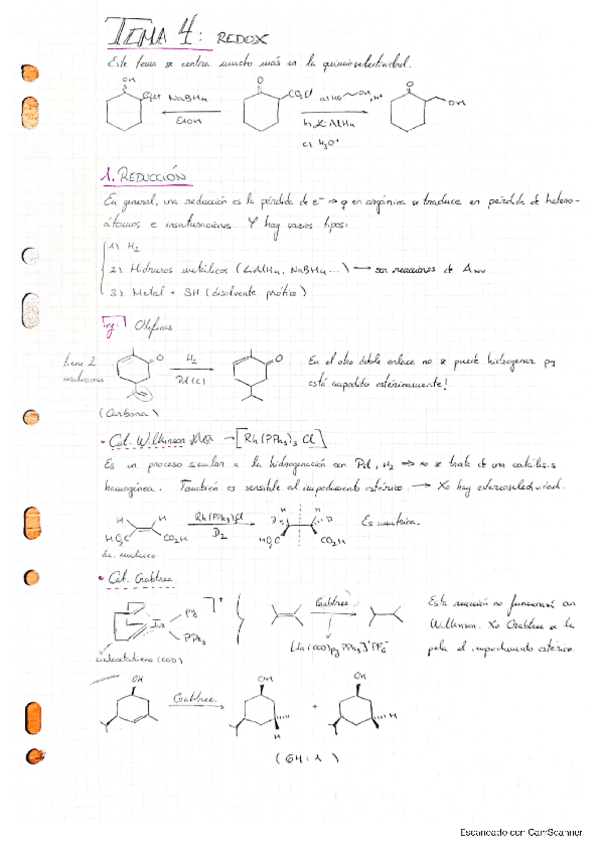 TEMA 4: REDOX
Este tema se centra mucho más en la quimioselectividad.
OH O O
CO₂Et NaBH₄ CO₂Et a) HO OH, H⁺ OH
EtOH b) LiAlH₄
c) H₃O⁺
1. REDUCCIÓN
En general, una reducción es la pérdida de e⁻ → q en orgánica se traduce en pérdida de hetero-
átomos e insaturaciones. Y hay varios tipos:
1) H₂
2) Hidruros metálicos (LiAlH₄, NaBH₄...) → son reacciones de
3) Metal + SH (disolvente prótico)
Eg: Olefinas
tiene 2
insaturaciones
O H₂ O
Pd(C)
En el otro doble enlace no se puede hidrogenar pq
está impedido estéricamente!
(Carbona)
• Cat. Wilkinson → [Rh(PPh₃)₃Cl]
Es un proceso similar a la hidrogenación con Pd, H₂ → xo se trata de una catálisis
homogénea. También es sensible al impedimento estérico. → Xo hay estereoselectividad.
H H Rh(PPh₃)₃Cl H H
HO₂C CO₂H D₂ D D
HO₂C CO₂H
Es simétrica.
ác. maleico
• Cat. Crabtree
Ir Py ⁺
PPh₃
ciclooctadieno (COD)
Crabtree
[Ir(COD)py PPh₃]⁺PF₆⁻
Esta reacción no funcionaría con
Wilkinson. Xo Crabtree se la
pela el impedimento estérico.
OH Crabtree OH + OH
H H
(64:1)
Escaneado con CamScanner